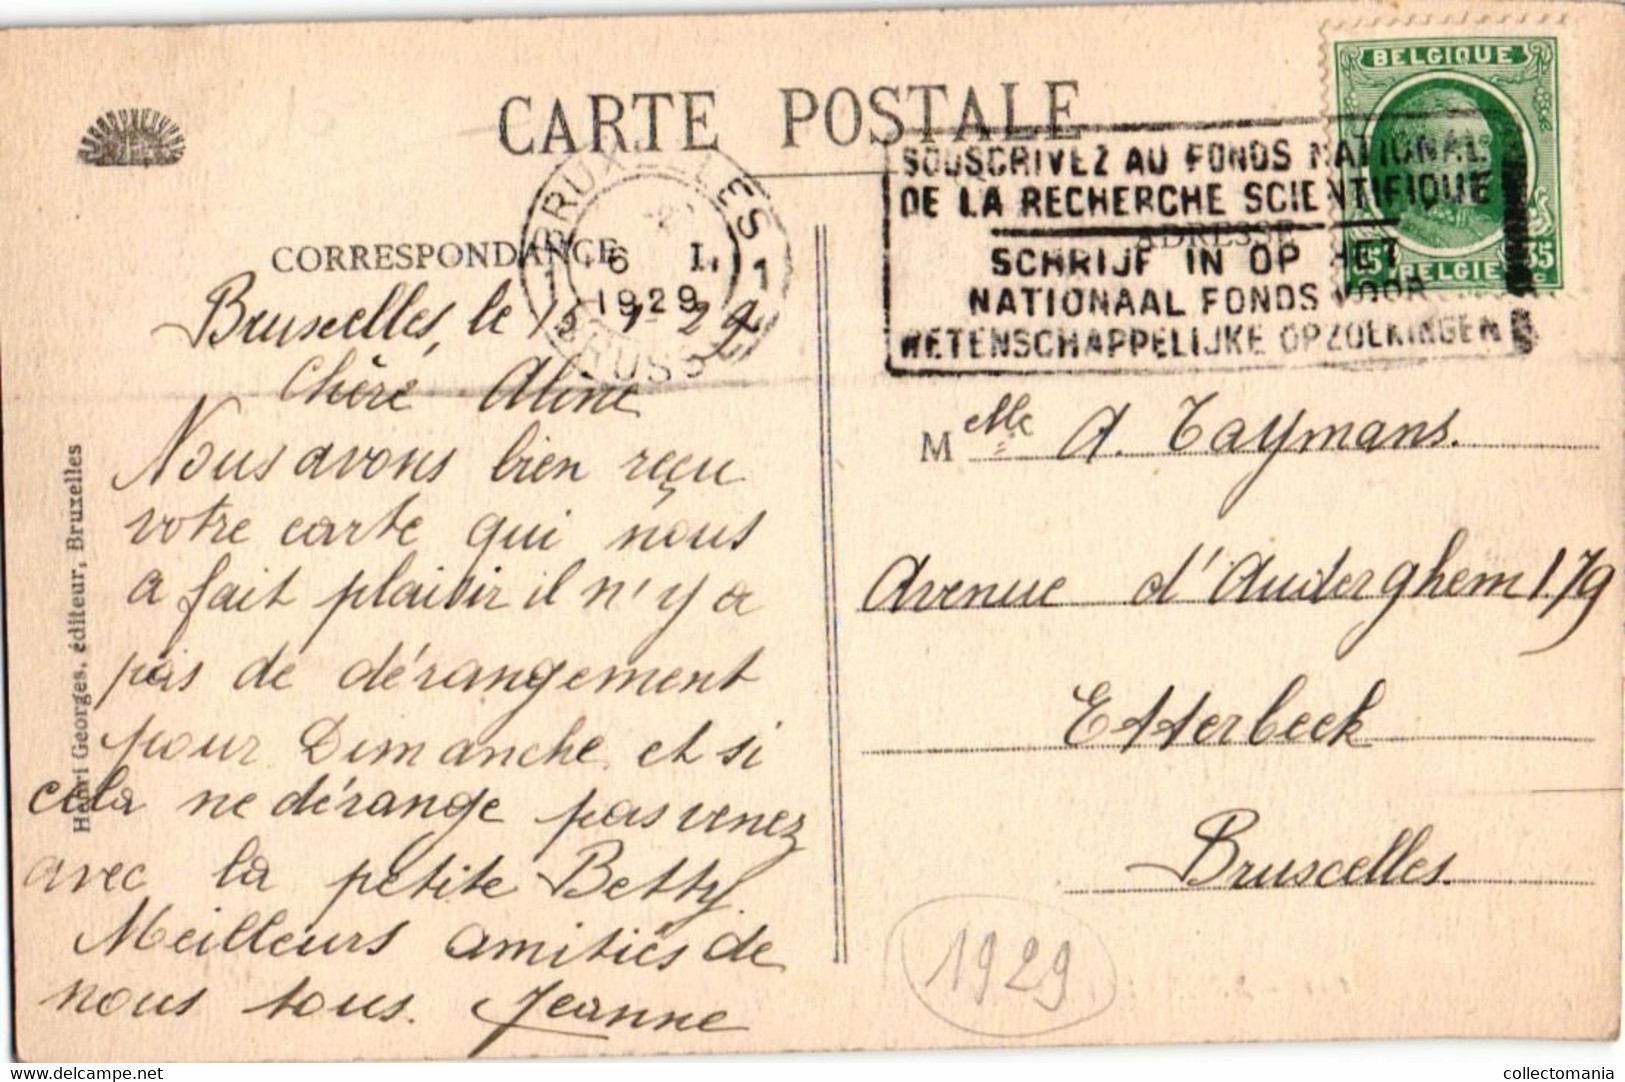 CARTE POSTALE
BELGIQUE
SOUSCRIVEZ AU FONDS NATIONAL
DE LA RECHERCHE SCIENTIFIQUE
SCHRIJF IN OP HET
NATIONAAL FONDS VOOR
WETENSCHAPPELIJKE OPZOEKINGEN
35 BELGIË 35
BRUXELLES 1
6 I.
1929
BRUSSEL
CORRESPONDANCE
ADRESSE
Bruxelles, le 15-1-29
Chère Aline
Nous avons bien reçu
votre carte qui nous
a fait plaisir il n'y a
pas de dérangement
pour Dimanche et si
cela ne dérange pas venez
avec la petite Betty.
Meilleurs amitiés de
nous tous. Jeanne
Henri Georges, éditeur, Bruxelles
M elle A. Taymans.
Avenue d'Auderghem 179
Etterbeek
Bruxelles.
1929
delcampe.net
collectomania